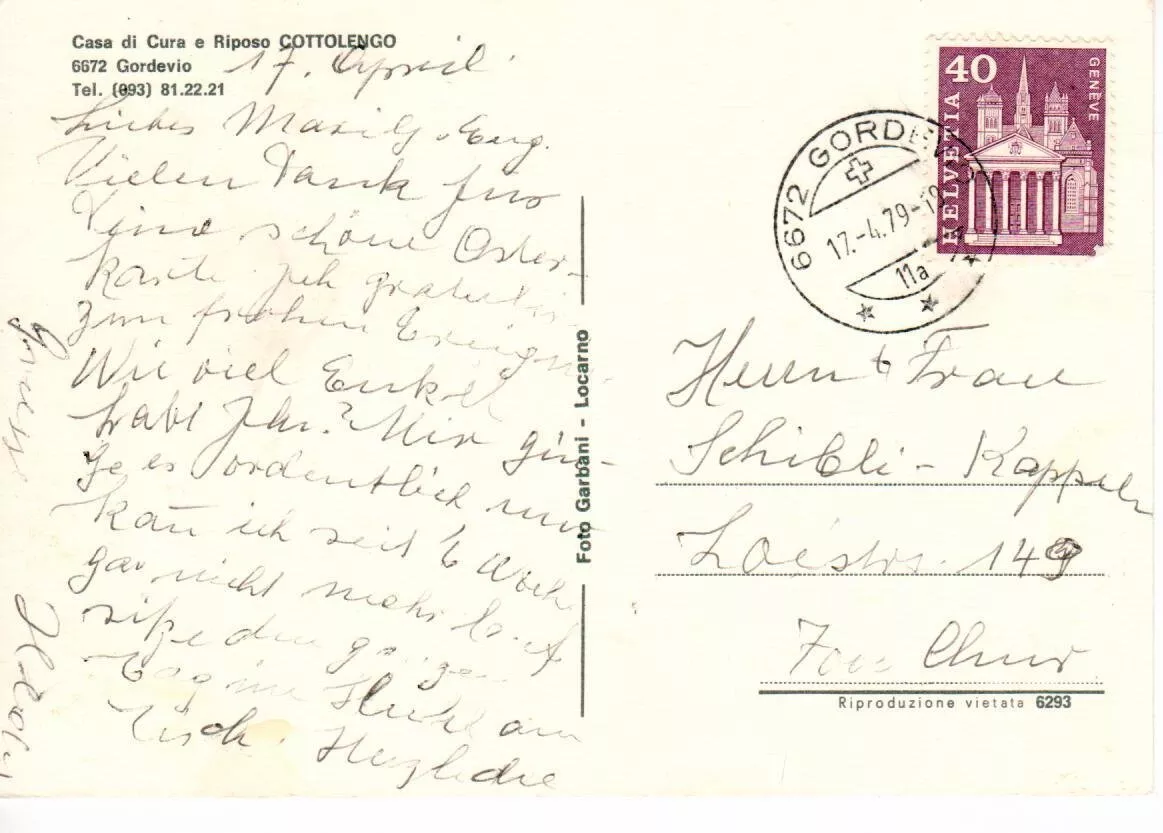 Casa di Cura e Riposo COTTOLENGO
6672 Gordevio
Tel. (093) 81.22.21
17. April
Liebes
Vielen Dank für
Deine schöne Oster-
karte. Ich gratuliere
zum frohen
Wie viel Enkel
habt Ihr? Mir gin-
ge es ordentlich nur
kan̄ ich seit 6
gar nicht mehr
sitze den ganzen
Tag im am
Tisch. Herzliche
Grüsse
Foto Garbani - Locarno
HELVETIA
40
GENÈVE
6672 GORDEVIO
17.-4.79-18
11a
Herrn & Frau
Schibli - Kappeler
Loestr. 149
7000 Chur
Riproduzione vietata 6293